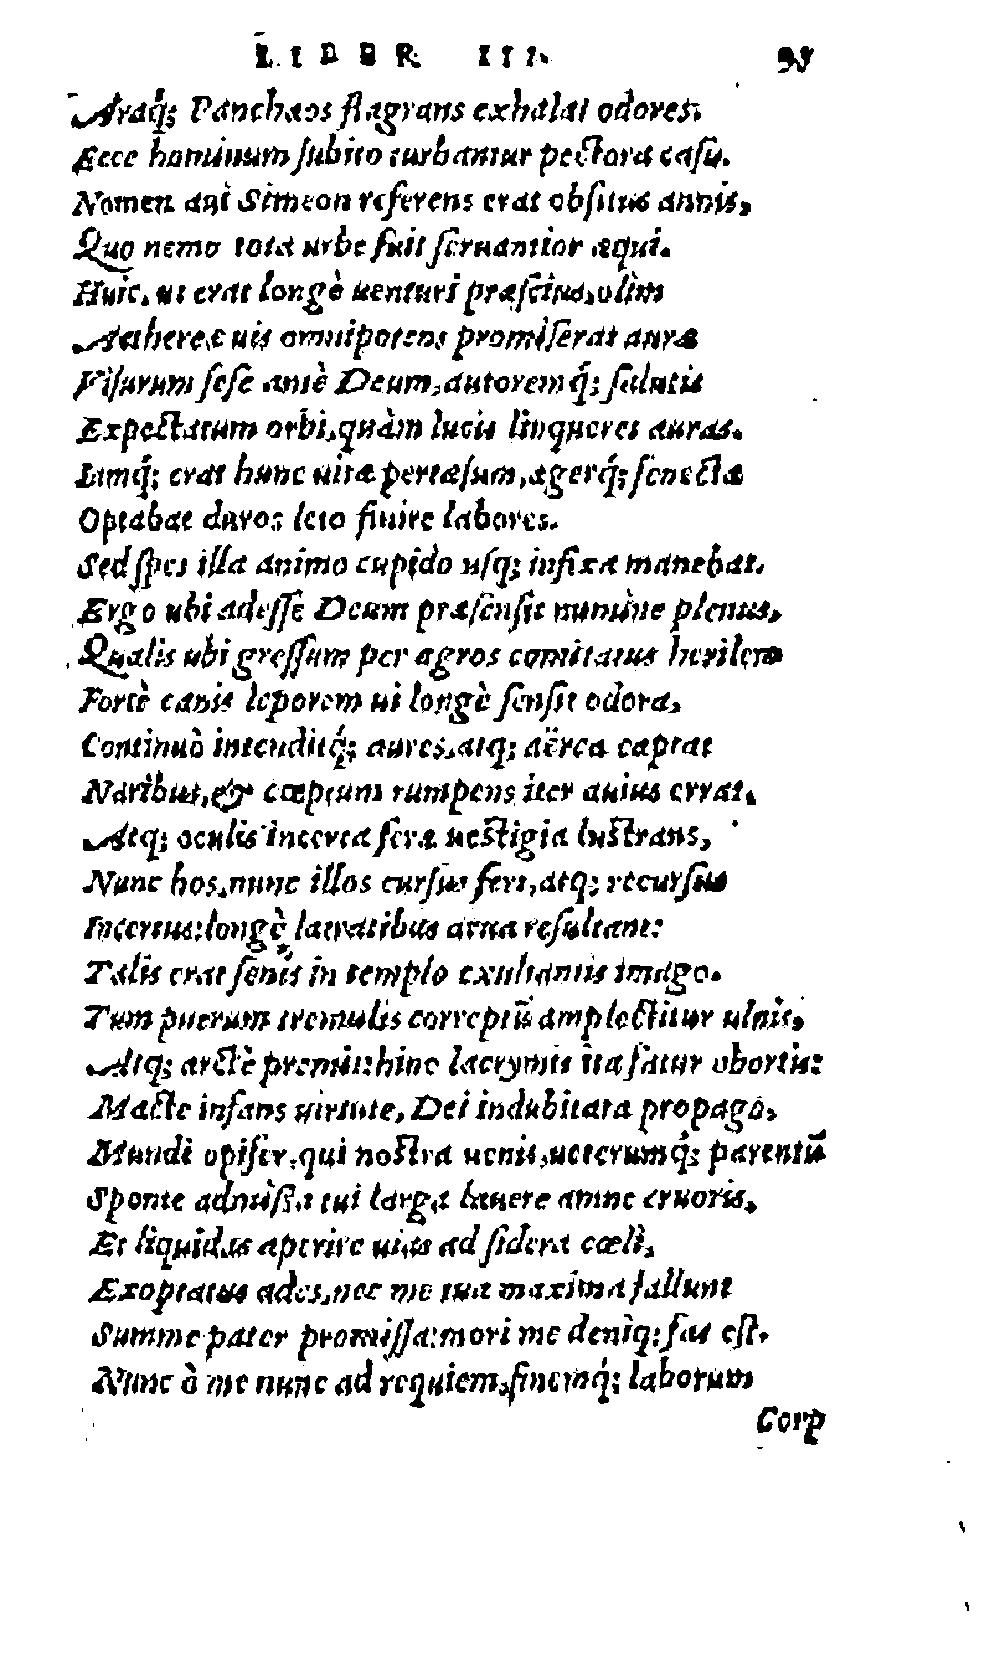 LIBER III.
Araq; Panchaos flagrans exhalat odores.
Ecce hominum ſubito turbantur pectora caſu.
Nomen agi Simeon referens erat obſitus annis,
Quo nemo tota urbe fuit ſeruantior æqui.
Huic, ut erat longè uenturi præſcius, olim
Aethereæ uis omnipotens promiſerat auræ
Viſurum ſeſe antè Deum, autoremq́; ſalutis
Expectatum orbi, quàm lucis linqueret auras.
Iamq́; erat hunc uitæ pertæſum, ægerq́; ſenecta
Optabat duros leto finire labores.
Sed ſpes illa animo cupido uſq; infixa manebat.
Ergo ubi adeſſe Deum præſenſit numine plenus,
Qualis ubi greſſum per agros comitatus herilem
Fortè canis leporem ui longè ſenſit odora,
Continuò intenditq́; aures, atq; aërea captat
Naribus, & cœptum rumpens iter auius errat,
Atq; oculis incerta feræ ueſtigia luſtrans,
Nunc hos, nunc illos curſus fert, atq; recurſus
Incertus: longè latratibus arua reſultant:
Talis erat ſenis in templo exultantis imago.
Tum puerum tremulis correptũ amplectitur ulnis,
Atq; arctè premit: hinc lacrymis ita fatur obortis:
Macte infans uirtute, Dei indubitata propago,
Mundi opifer, qui noſtra uenis, ueterumq́; parentũ
Sponte admiſſa tui largo lauere amne cruoris,
Et liquidas aperire uias ad ſidera cœli,
Exoptatus ades, nec me tua maxima fallunt
Summe pater promiſſa: mori me deniq; fas eſt.
Nunc ò me nunc ad requiem, finemq́; laborum
Corp